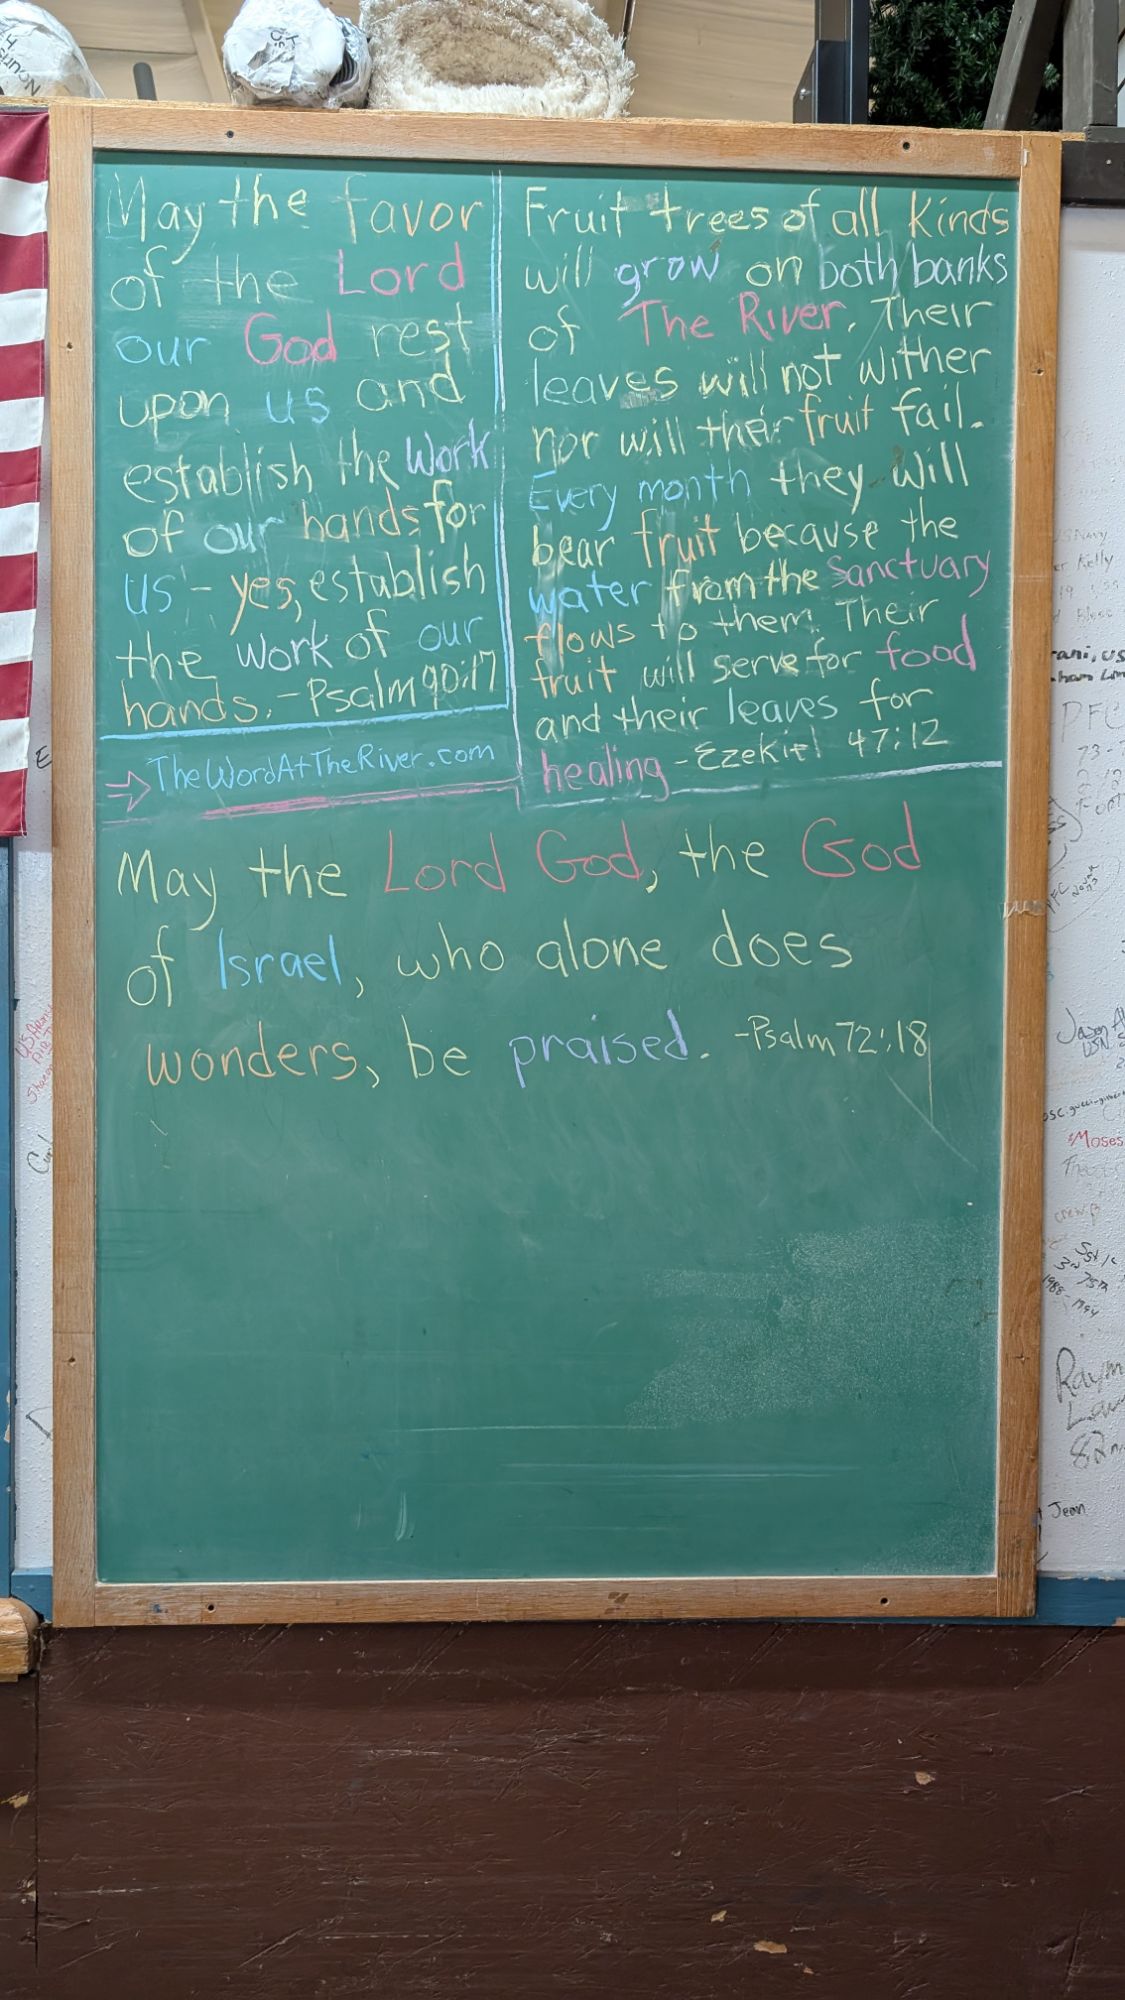 May the favor
of the Lord
our God rest
upon us and
establish the work
of our hands for
us - yes, establish
the work of our
hands. - Psalm 90:17
TheWordAtTheRiver.com
Fruit trees of all kinds
will grow on both banks
of The River. Their
leaves will not wither
nor will their fruit fail.
Every month they will
bear fruit because the
water from the Sanctuary
flows to them. Their
fruit will serve for food
and their leaves for
healing - Ezekiel 47:12
May the Lord God, the God
of Israel, who alone does
wonders, be praised. -Psalm 72:18
Kelly
PFC
Jason
USN
Moses
1988-
Raym
82
Jean